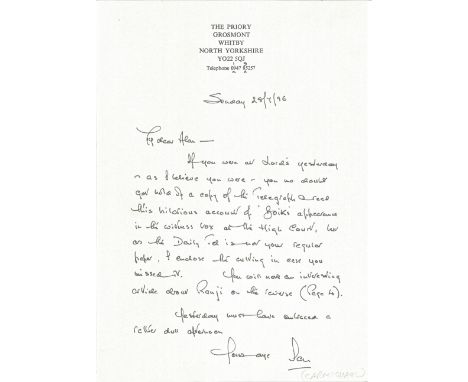 THE PRIORY
GROSMONT
WHITBY
NORTH YORKSHIRE
YO22 5QJ
Telephone 0947 85257
Sunday 28/7/96
My dear Alan —
If you were at Lord's yesterday
- as I believe you were - you no doubt
got hold of a copy of the Telegraph & read
this hilarious account of 'Boiks' appearance
in the witness box at the High Court, but
as the Daily Tel is not your regular
paper, I enclose the cutting in case you
missed it. You will note an interesting
article about Ranji on the reverse (Page 4).
Yesterday must have enlivened a
rather dull afternoon
Yours aye